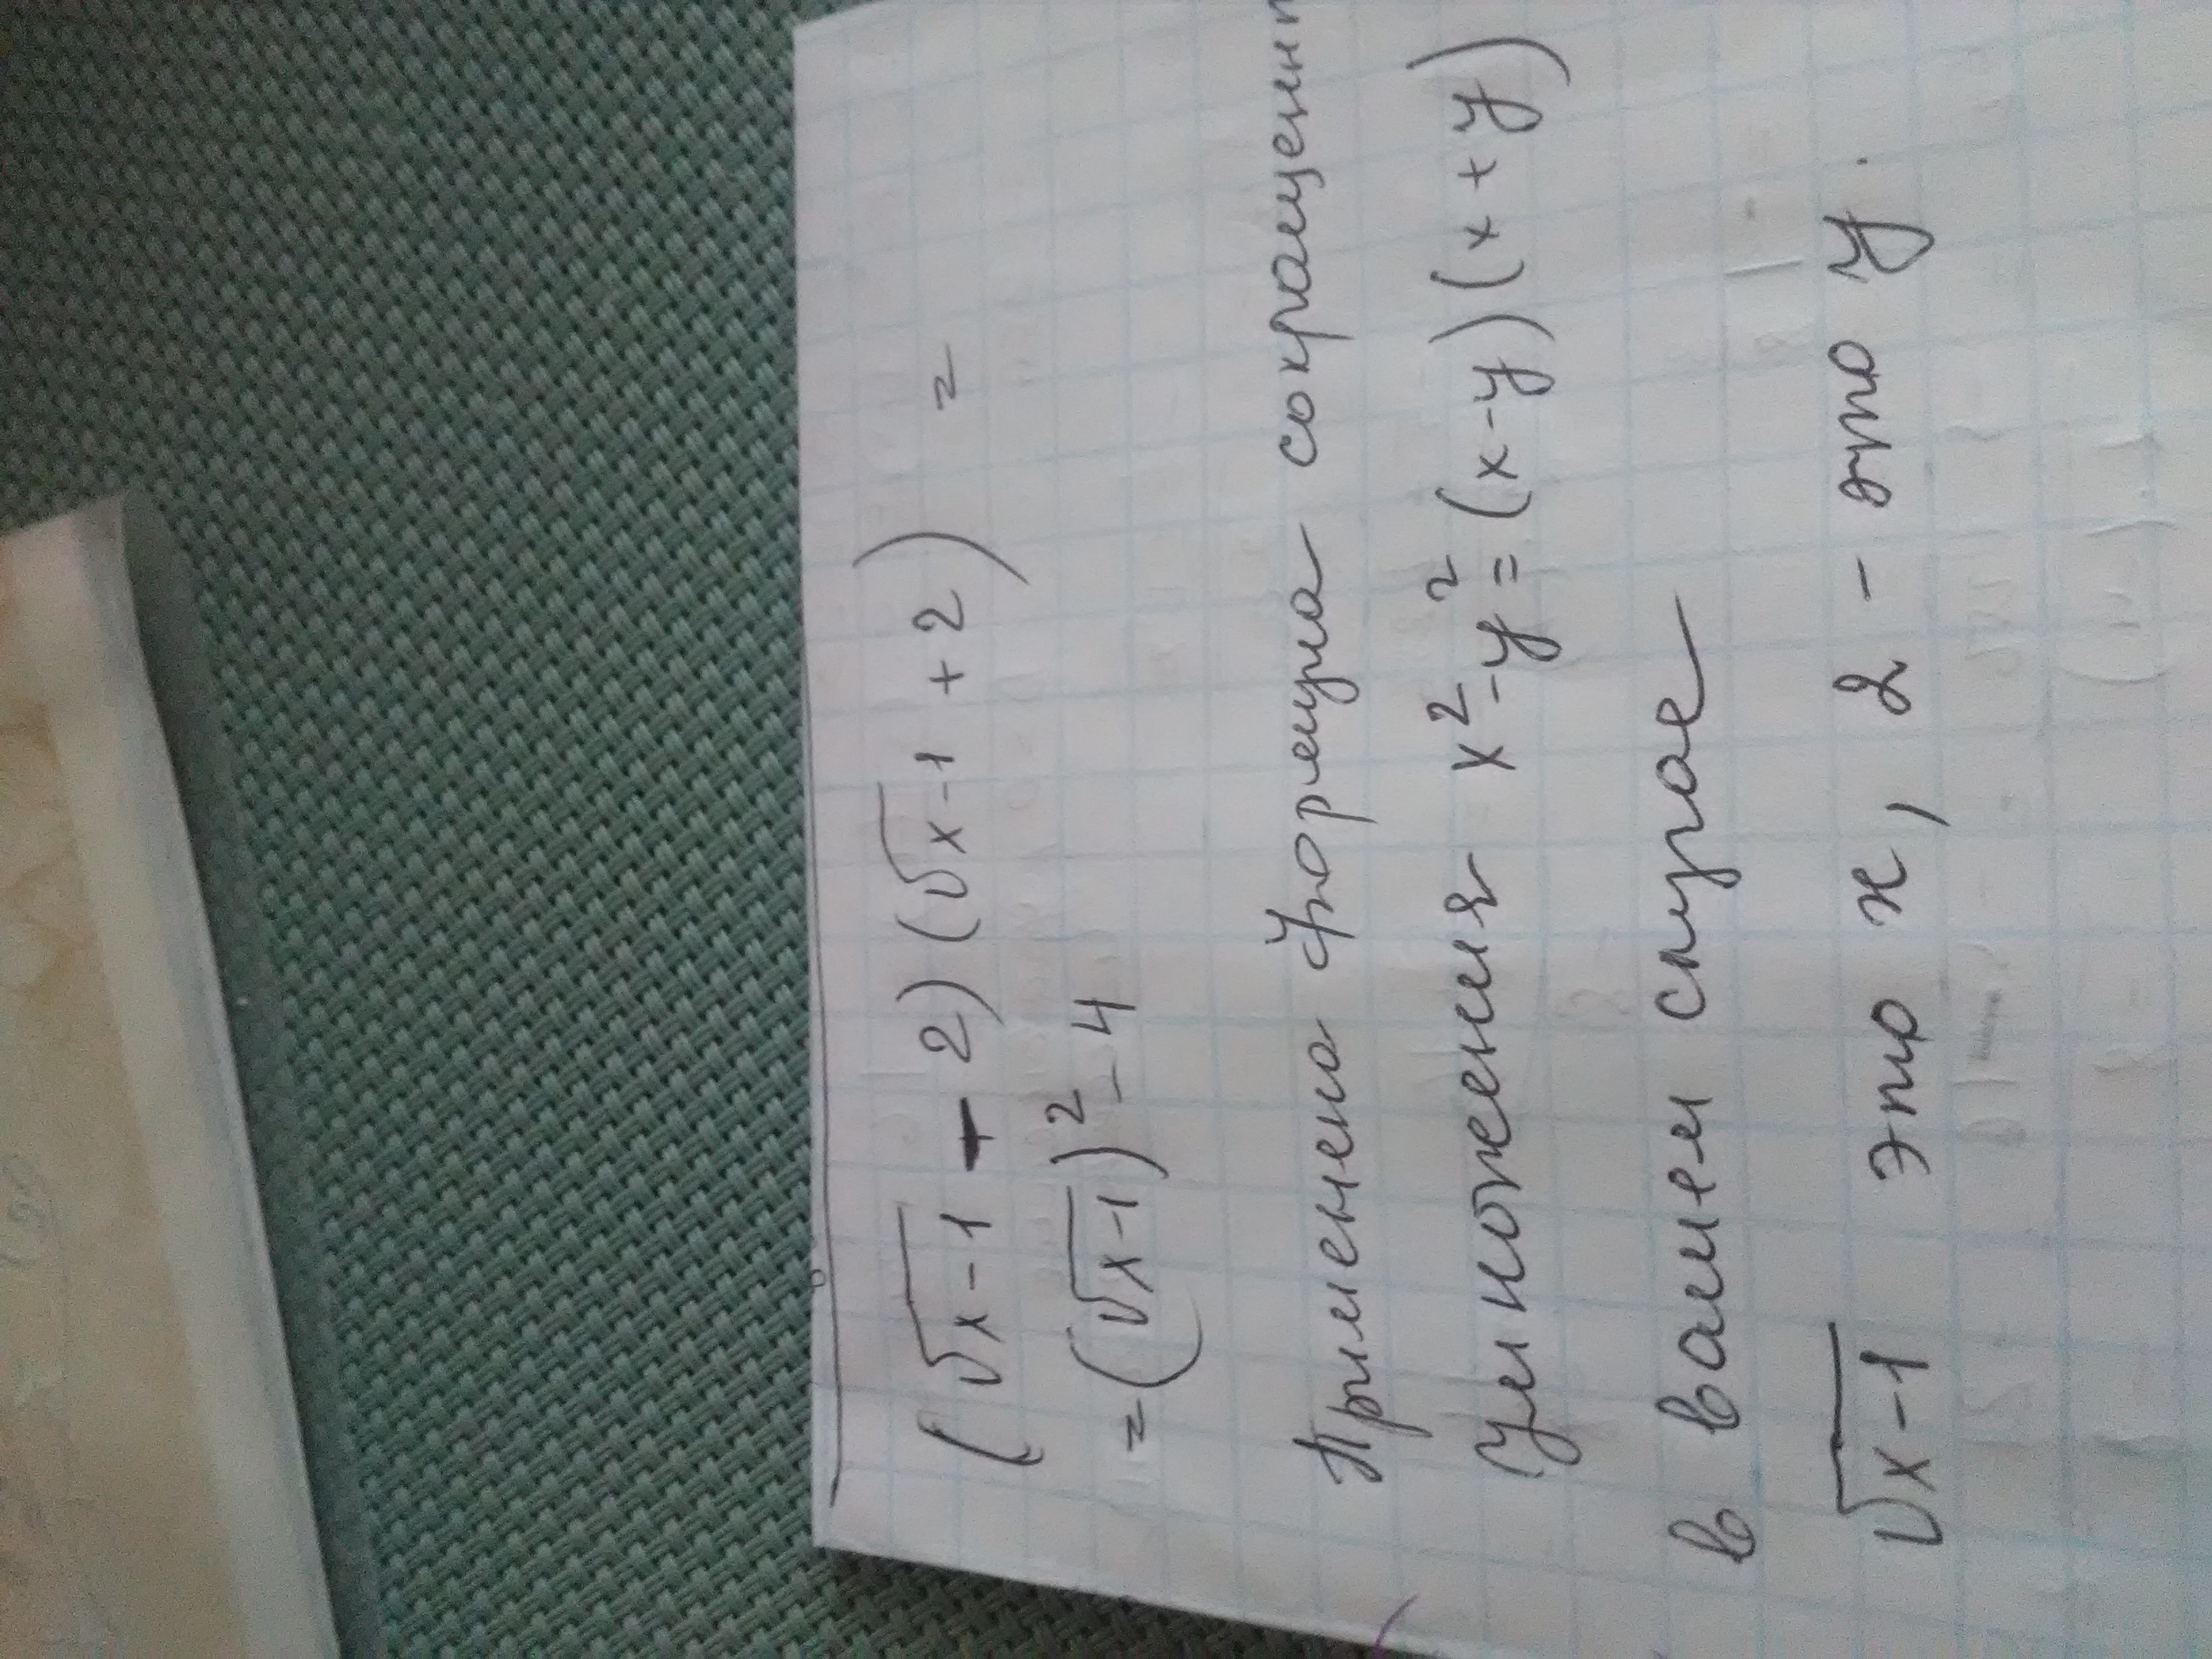 (√x-1 - 2)(√x-1 + 2) =
= (√x-1)² - 4
Применена формула сокращенн
умножения x² - y² = (x-y)(x+y)
в вашем случае
√x-1 это x, 2 - это y.